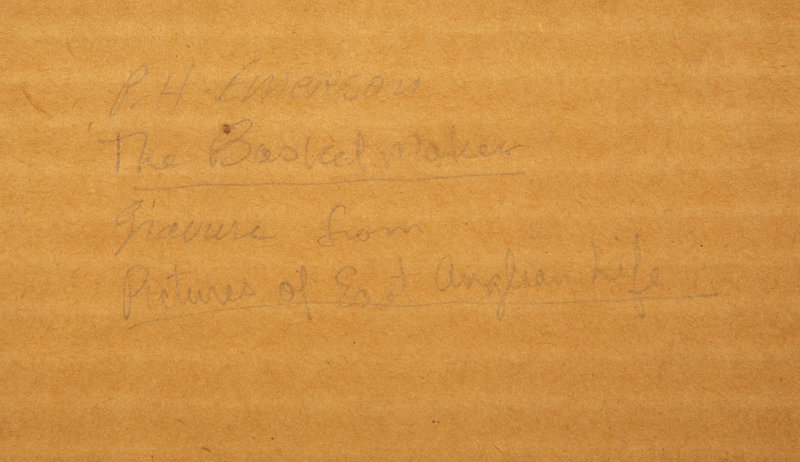 P. H. Emerson
The Basket Maker
Gravure from
Pictures of East Anglian Life